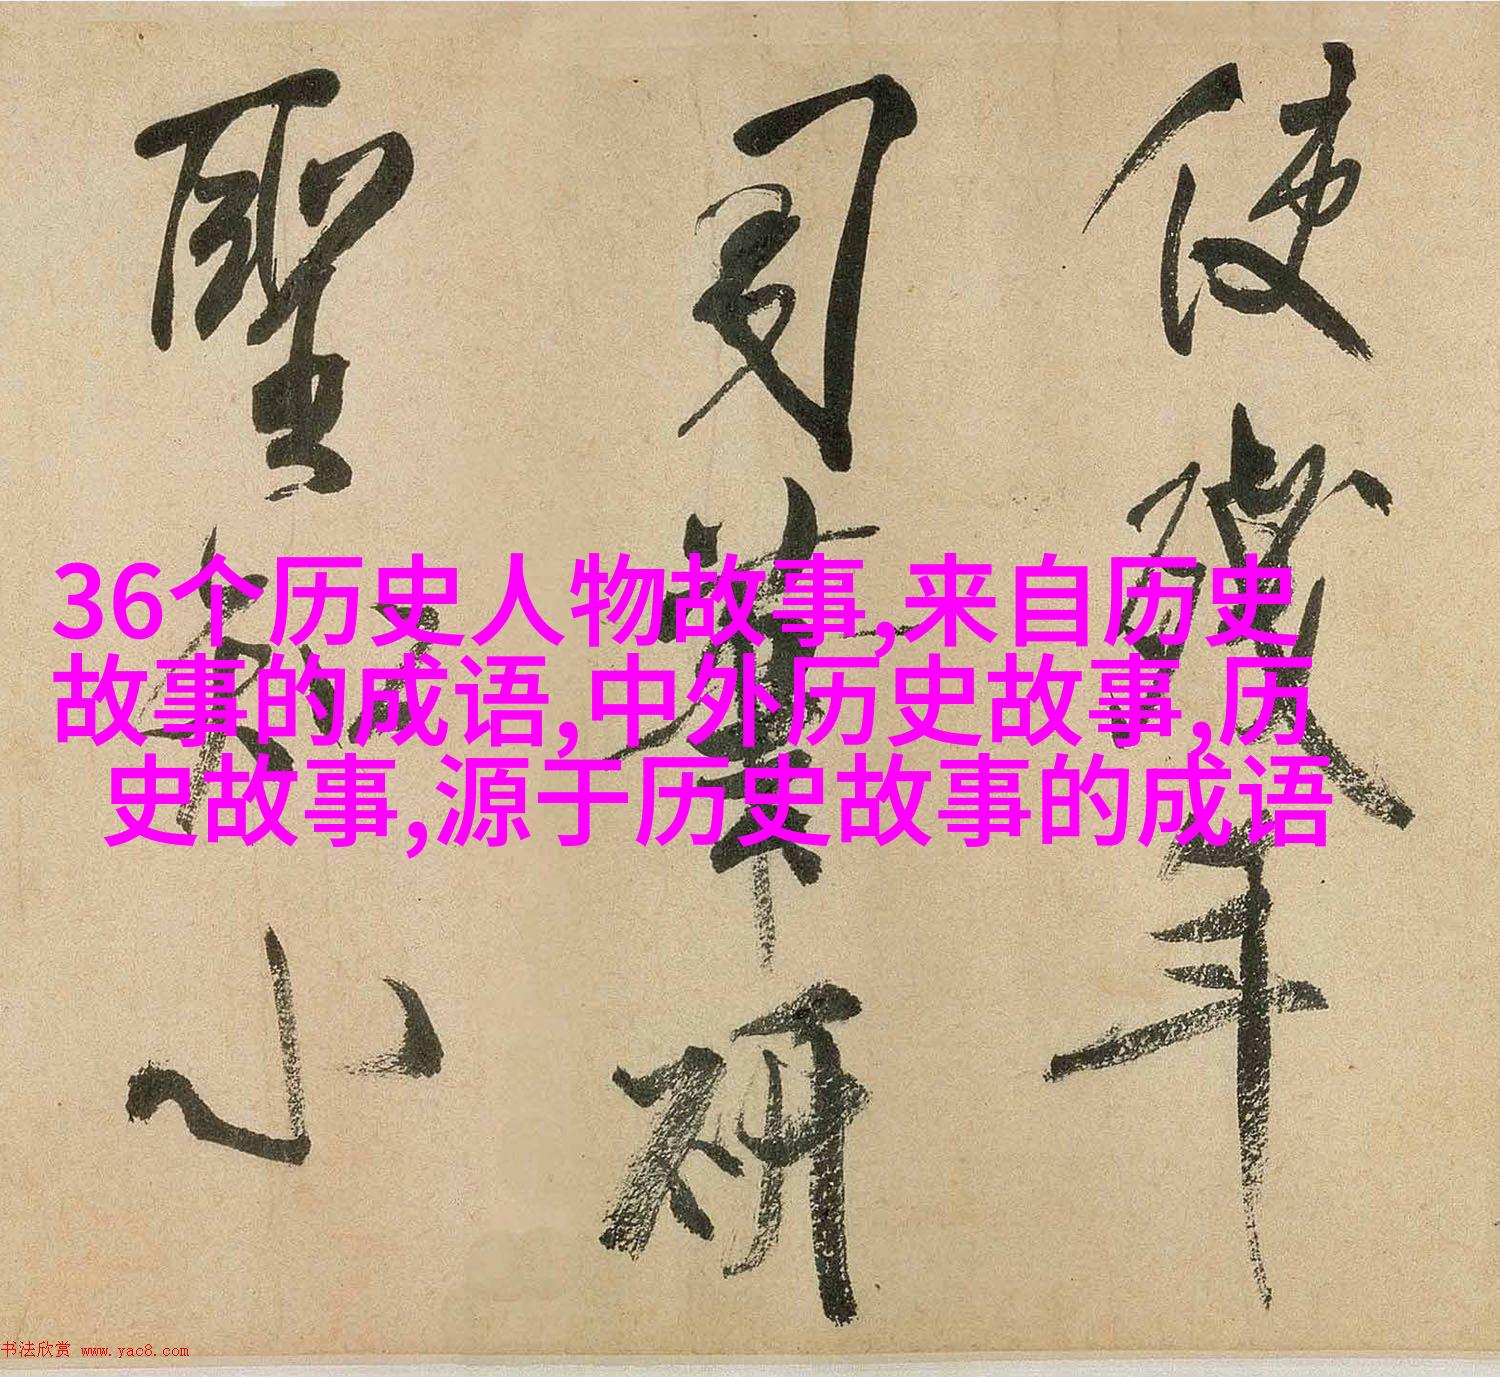 使年
筆研
聖小
36个历史人物故事,来自历史
故事的成语,中外历史故事,历
史故事,源于历史故事的成语
书法欣赏 www.yac8.com